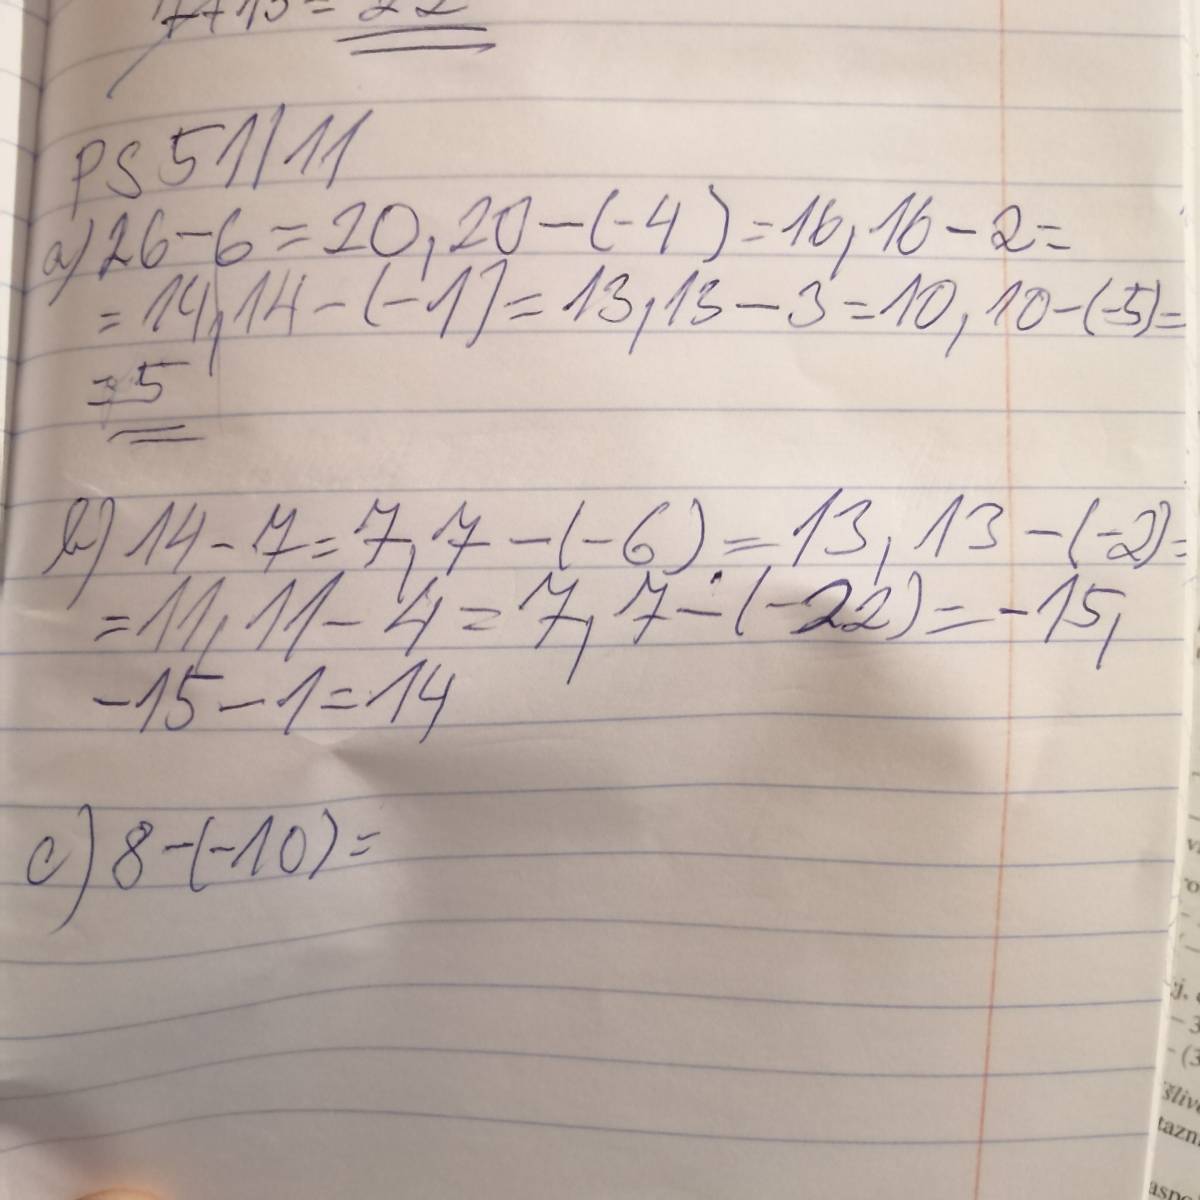 7+15 = 22
PS 51/11
a) 26-6=20, 20-(-4)=16, 16-2=
= 14, 14-(-1)=13, 13-3=10, 10-(-5)=
= 5
b) 14-7=7, 7-(-6)=13, 13-(-2)=
=11, 11-4=7, 7-(-22)=-15,
-15-1=14
c) 8-(-10)=